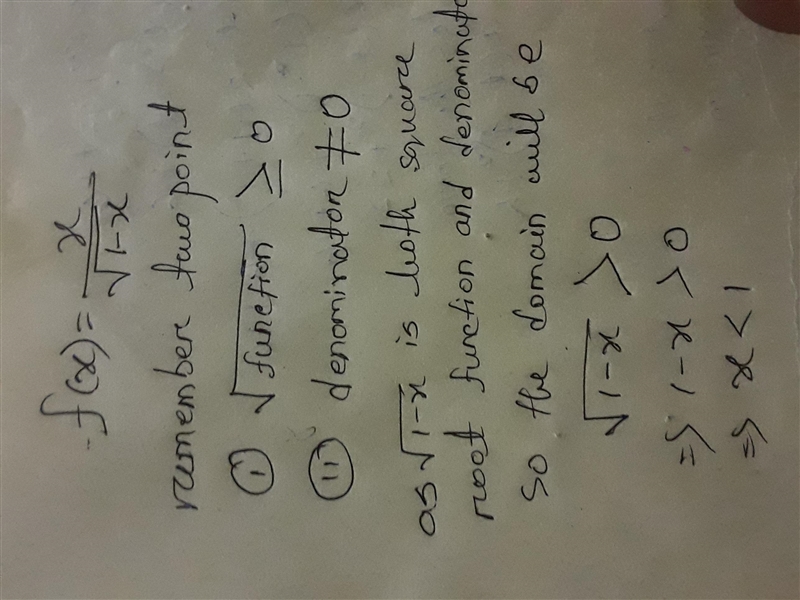 f(x) = x/√(1-x)
remember two point
(i) √function ≥ 0
(ii) denominator ≠ 0
as √(1-x) is both square
root function and denominato
so the domain will be
√(1-x) > 0
⇒ 1-x > 0
⇒ x < 1